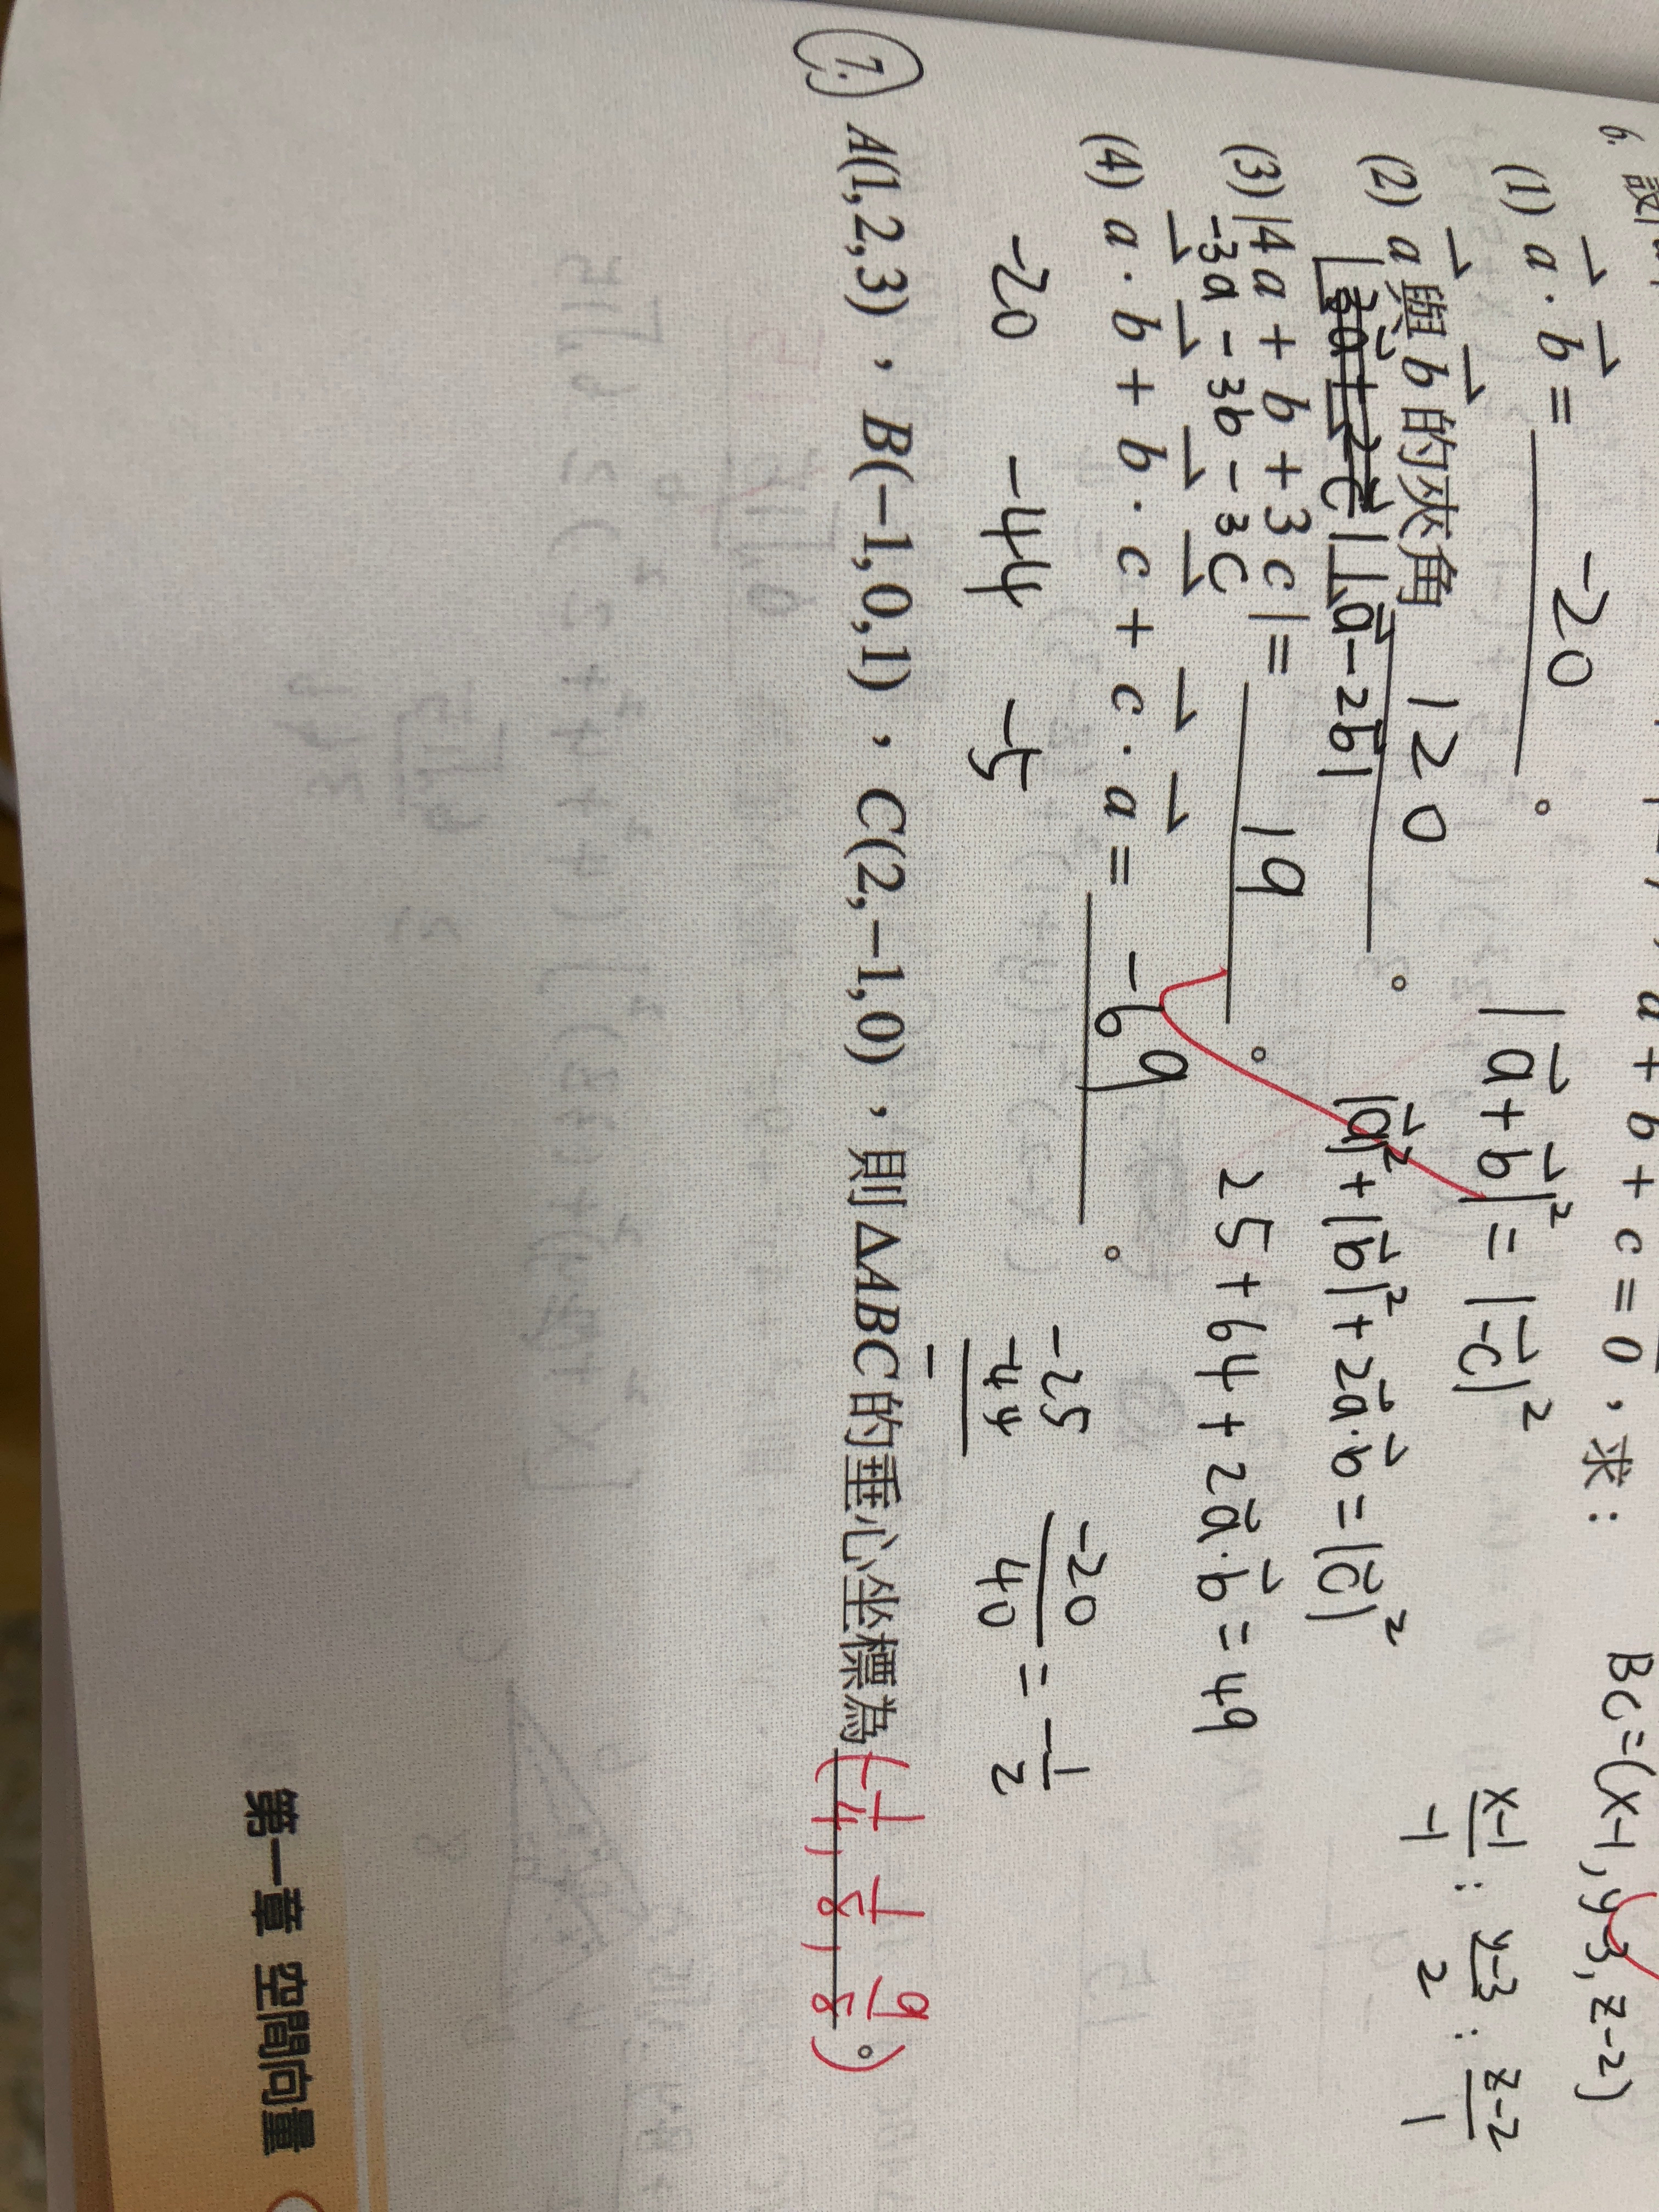 6. 設
a + b + c = 0，求：
BC=(x-1, y-3, z-2)
(1) a · b = -20 。
|a+b|² = |-c|²
x-1/-1 : y-3/2 : z-2/1
(2) a 與 b 的夾角 120 。
|a|²+|b|²+2a·b=|c|²
|a-2b|
(3) |4a + b + 3c| = 19 。
25+64+2a·b=49
-3a - 3b - 3c
(4) a · b + b · c + c · a = -69 。
-20 -44 -5
-25
-44
-20/40 = -1/2
7. A(1,2,3)，B(-1,0,1)，C(2,-1,0)，則△ABC的垂心坐標為(-1/4, 1/8, 9/8)。
第一章 空間向量